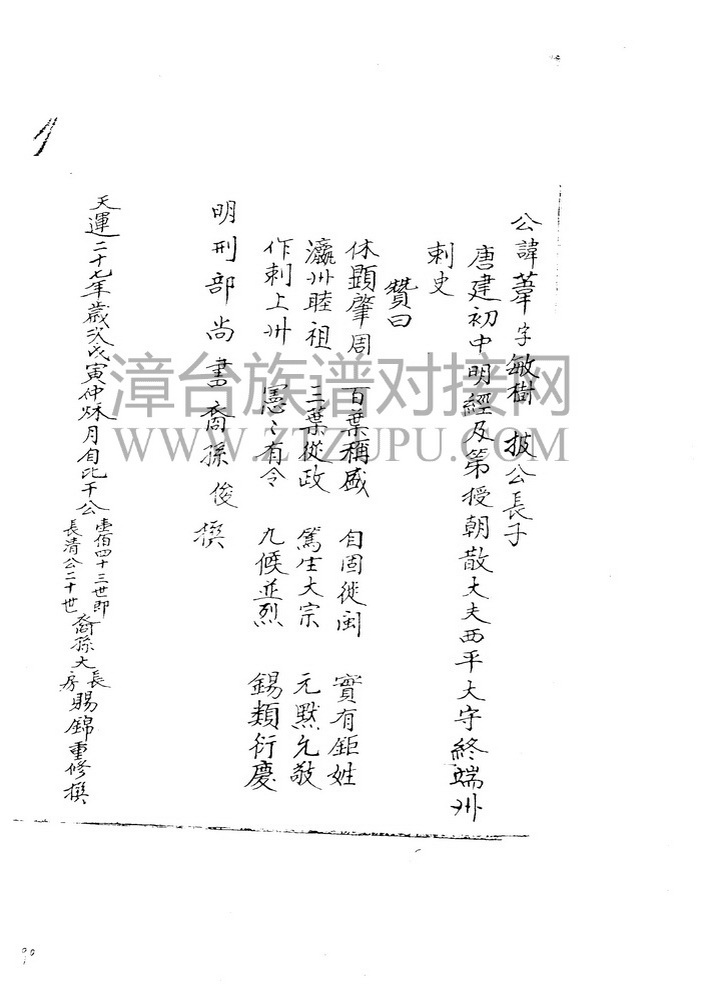 公諱葦字敏樹 披公長子
唐建初中明經及第授朝散大夫西平大守終端州
刺史
贊曰
休顯肇周 百葉稱盛 自固徙閩 實有鉅姓
瀛州睦祖 三葉從政 篤生大宗 元黙允敬
作刺上州 憲々有令 九候並烈 錫類衍慶
明刑部尚書裔孫俊撰
天運二十七年歲次戊寅仲秋月自比干公壹佰四十三世即長清公二十世裔孫大長房賜錦重修撰
漳台族谱对接网
WWW.ZTZUPU.COM